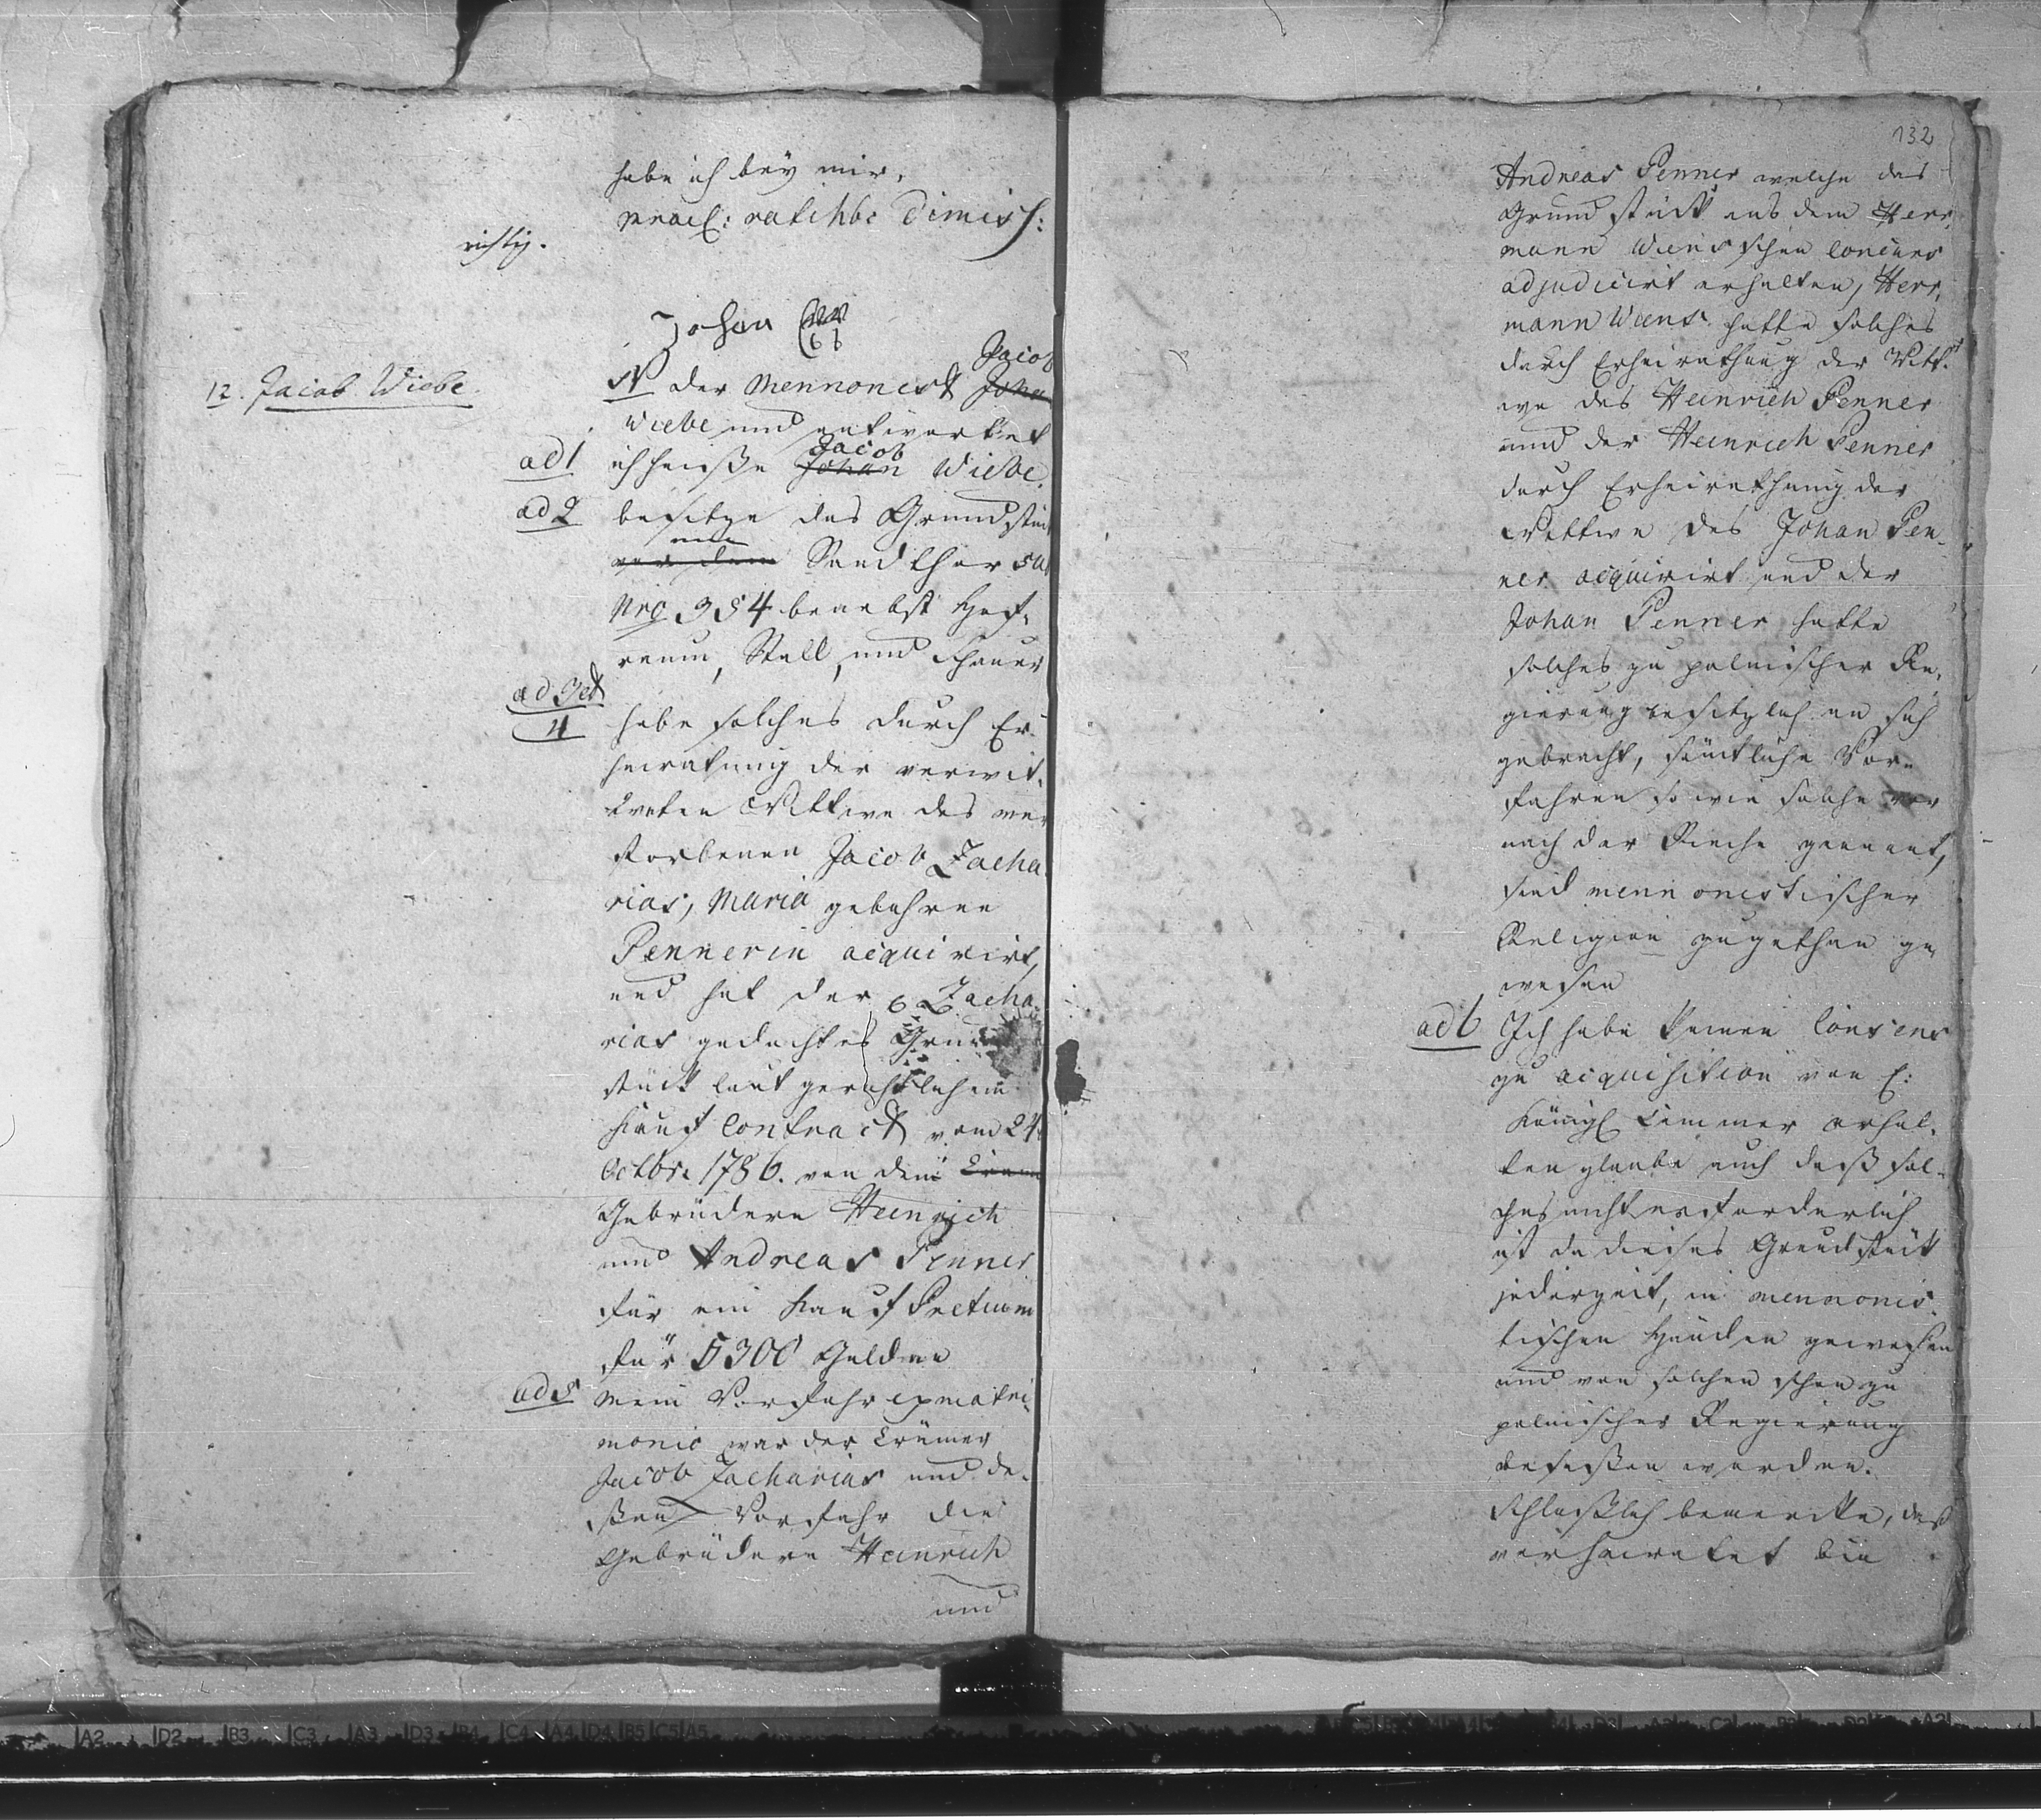 habe ich bey mir,
prael: ratihbe Dimiss:
richtig.
Johan
Jacob
12. Jacob Wiebe.
N der Mennonist Joha
Wiebe und antwortet
Jacob
ad 1 ich heisse Johan Wiebe.
ad 2 besitze das Grundstük
am
vor dem Sandthor sub
Nro 354 benebst Hof-
raum, Stall, und Scheuer
ad 3 et
4 habe solches durch Er-
heirathung der verwit-
tweten Wittwe des ver
storbenen Jacob Zacha
rias, Maria gebohrne
Pennerin acquirirt,
und hat der Zacha-
rias gedachtes Grund
stück laut gerichtlichem
Kauf Contract vom 24t
Octbr. 1786. von den
Gebrüdern Heinrich
und Andreas Penner
für ein Kauf Pretium
für 5300 Gulden
ad 5 Mein Vorfahr ex matri-
monio war der Krämer
Jacob Zacharias und de-
ßen Vorfahr die
Gebrüdere Heinrich
und
132
Andreas Penner welche das
Grundstück aus dem Herr-
mann Wiensschen Concurs
adjudicirt erhalten, Herr-
mann Wiens hatte solches
durch Erheirathung der Witt-
we des Heinrich Penner
und der Heinrich Penner
durch Erheirathung der
Wittwe des Johan Pen-
ner acquirirt und der
Johan Penner hatte
solches zu polnischer Re-
gierung besitzlich an sich
gebracht, sämtliche Vor-
fahren so wie solche
nach der Reihe genant,
sind mennonistischer
Religion zugethan ge-
wesen
ad 6 Ich habe keinen Consens
zu acquisition von E:
Königl Cammer erhal-
ten glaube auch daß sol-
ches nicht erforderlich
ist da dieses Grundstück
jederzeit, in mennonis-
tischen Händen gewesen
und von solchen schon zu
polnischer Regierung
besessen worden.
Schließlich bemercke, daß
verheiratet bin